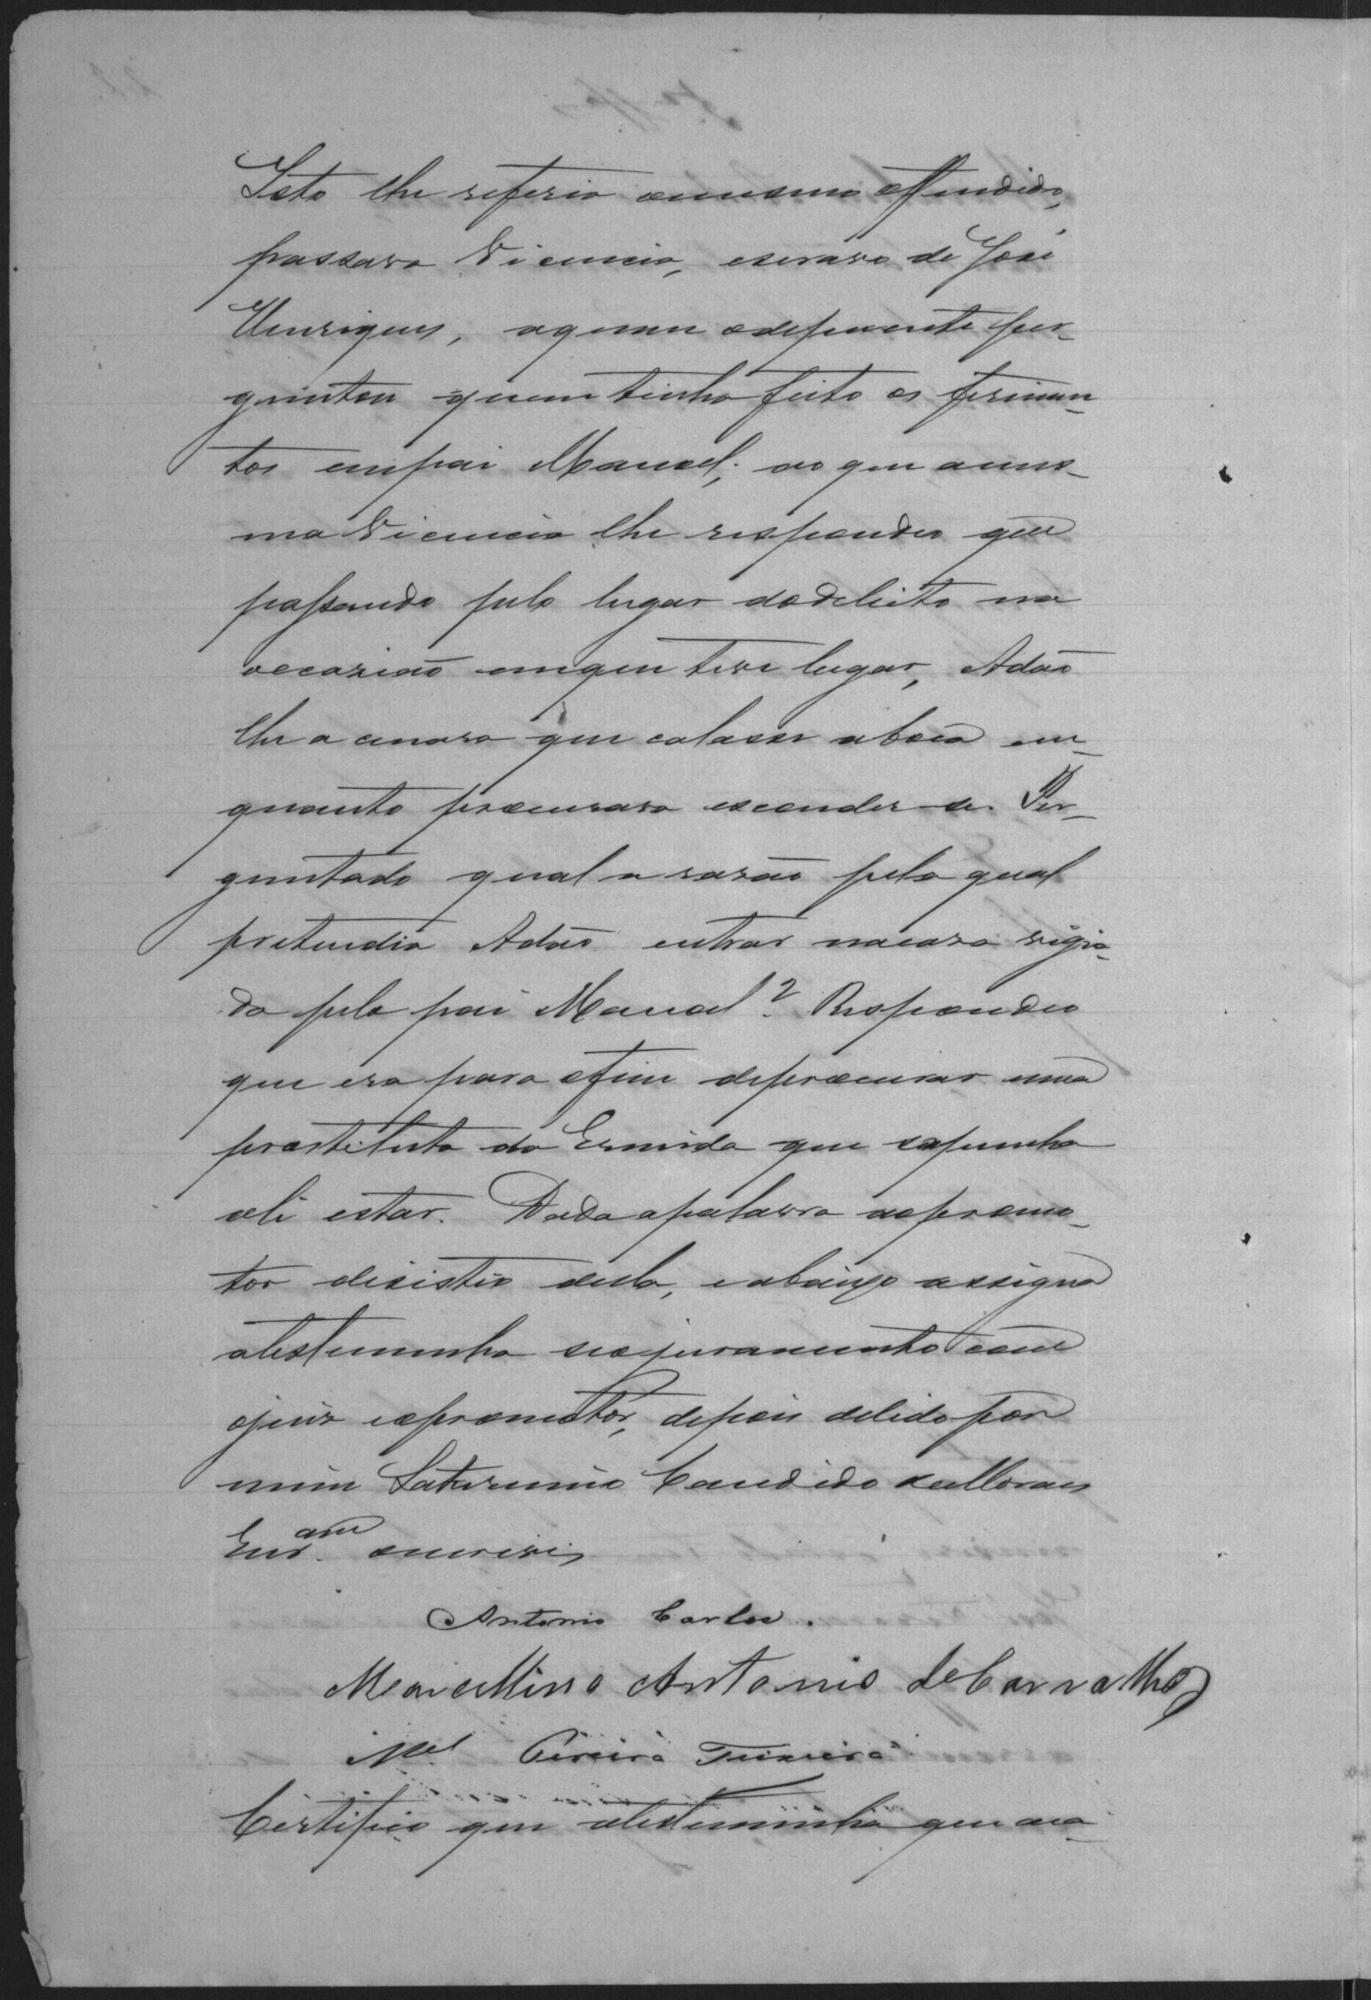 Isto lhe referio o mesmo offendido,
passava Vicencia, escrava de José
Henriques, a quem o depoente per-
guntou quem tinha feito os ferimen-
tos em pai Manoel; ao que a mes-
ma Vicencia lhe respondeu que
passando pelo lugar do delicto na
occazião em que teve lugar, Adão
lhe acenara que calasse a boca em-
quanto procurava esconder-se. Per-
guntado qual a razão pela qual
pretendia Adão entrar na caza vigia-
da pelo pai Manoel? Respondeu
que era para o fim de procurar uma
prostituta da Ermida que supunha
ali estar. Dada a palavra ao promo-
tor disistio della, e abaixo assigna
a testemunha seo juramento com
o juiz e o promotor, depois de lido por
mim Saturnino Candido de Moraes
Escr.am o escrevi
Antonio Carlos.
Marcellino Antonio de Carvalho
Mel Pereira Teixeira
Certifico que a testemunha que aca-